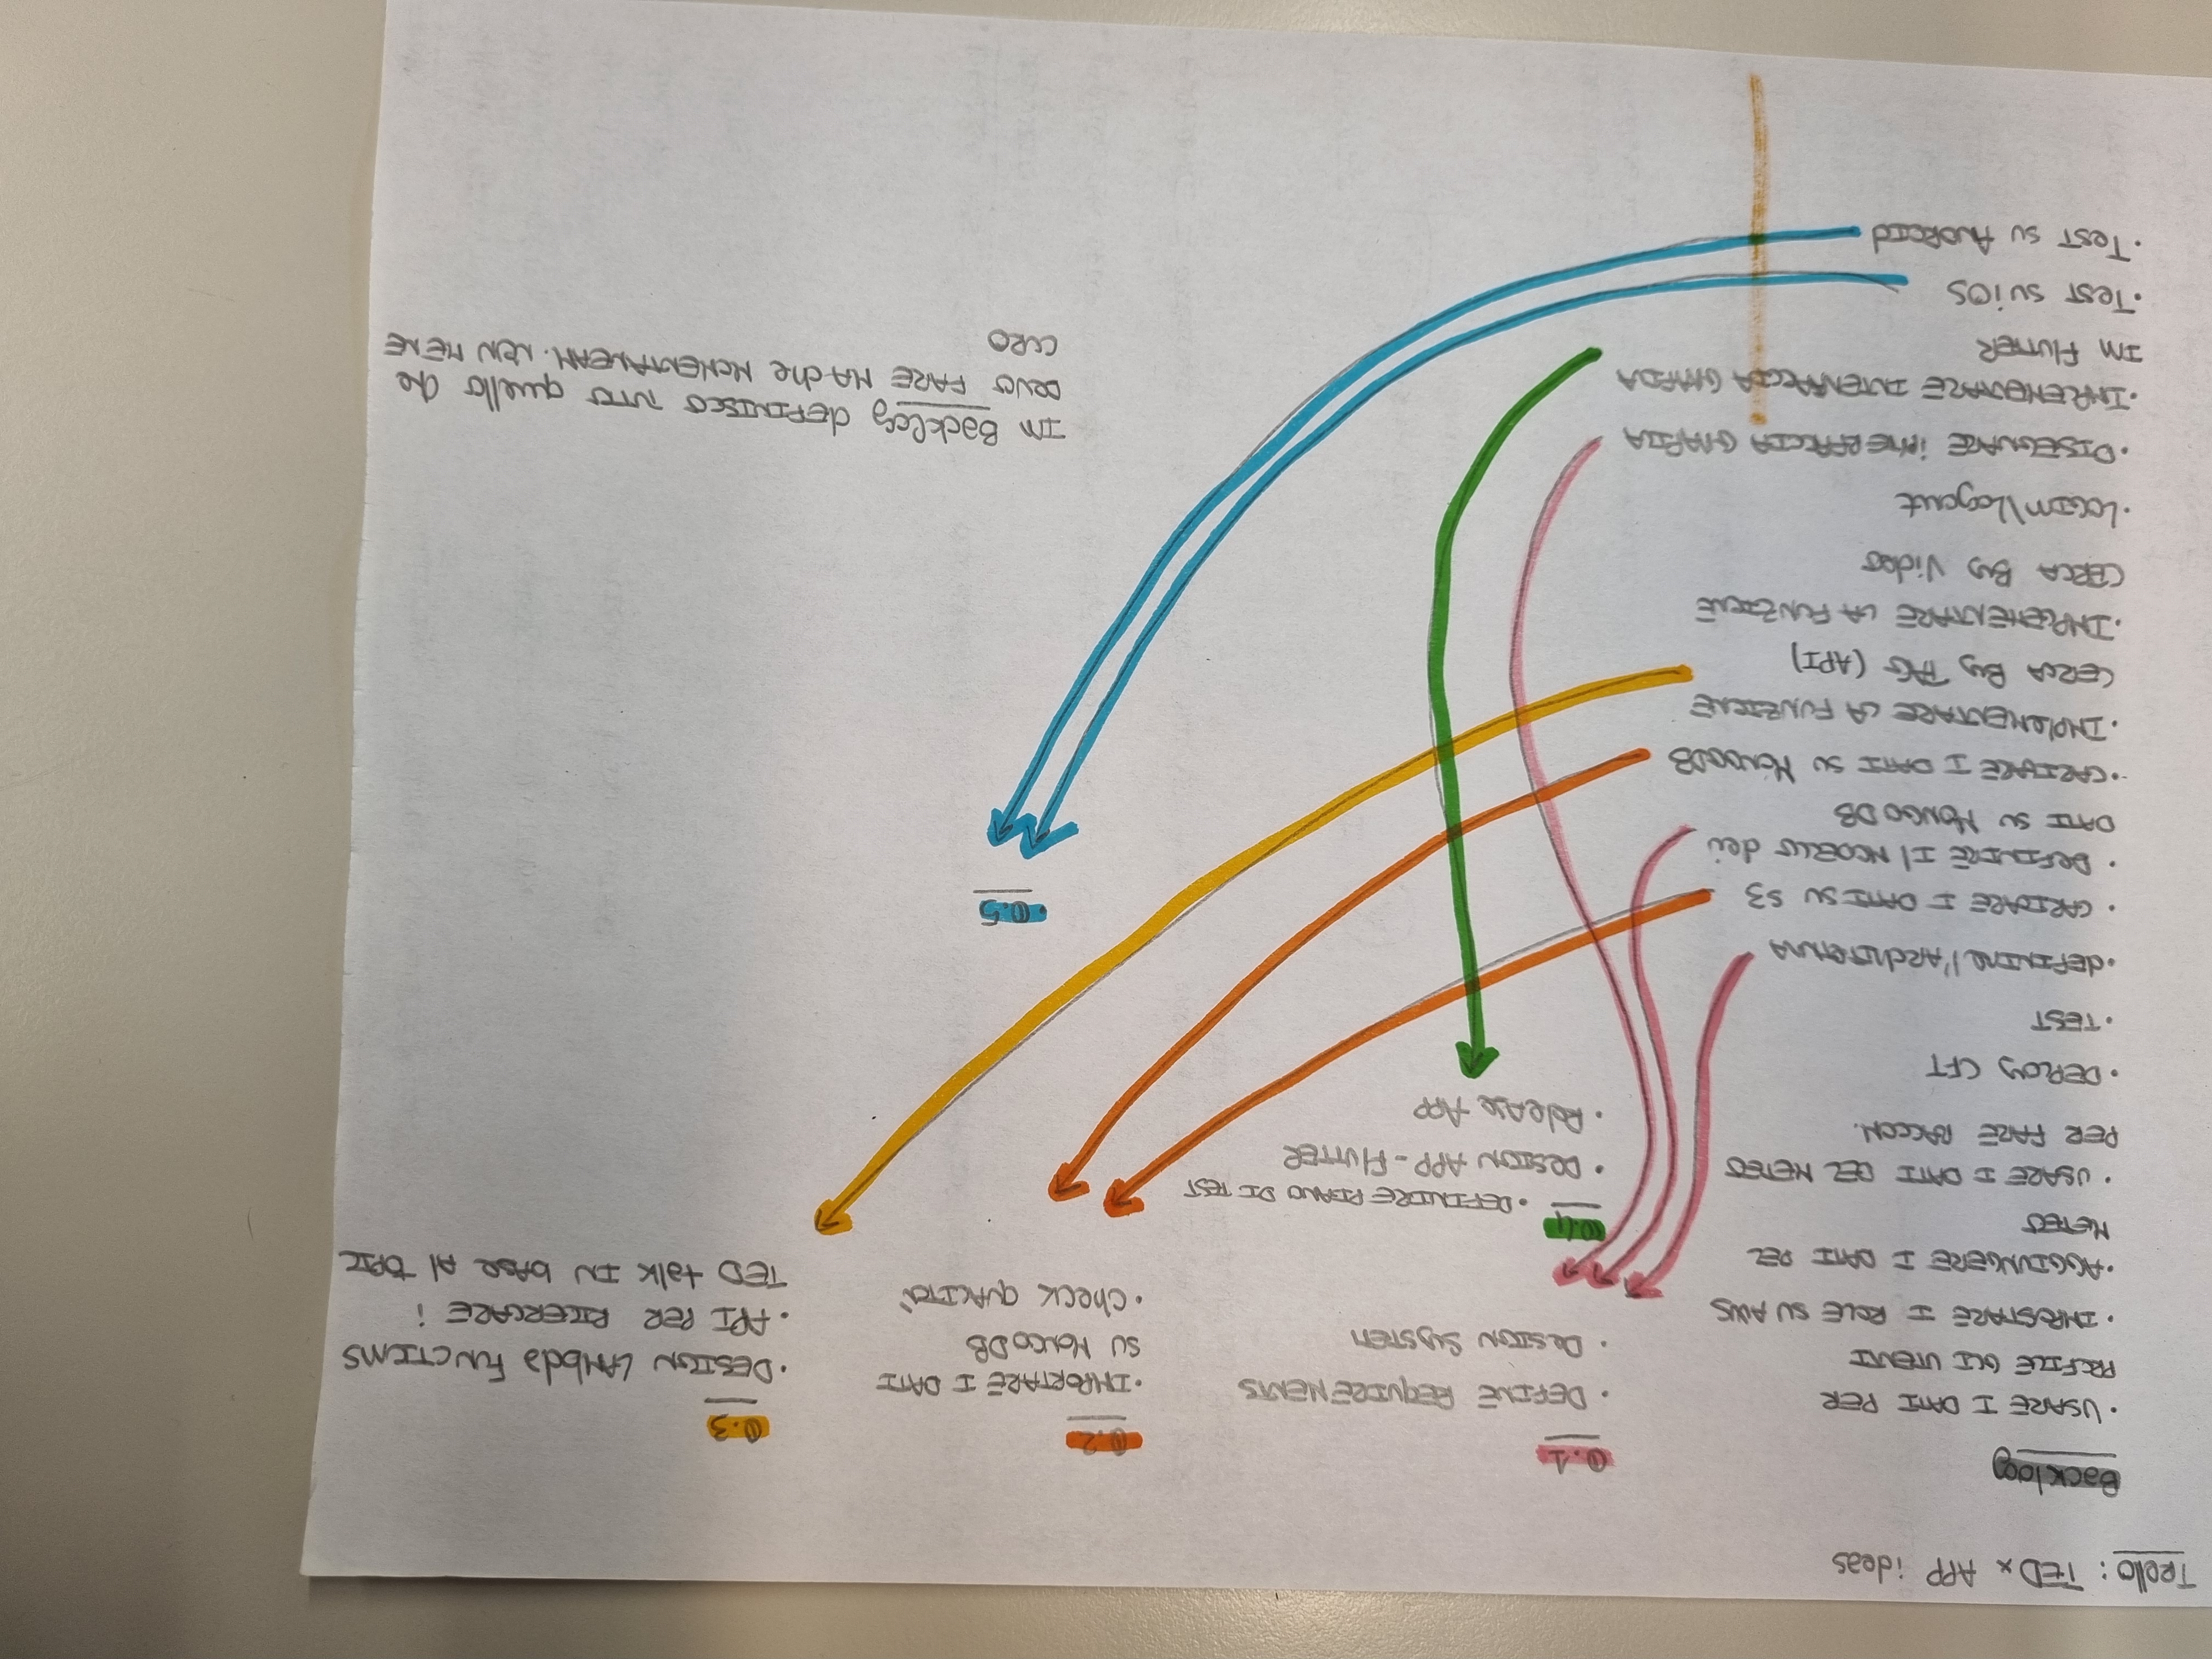 Trello: TEDx APP ideas
Backlog
· USARE I DATI PER
PROFILE GLI UTENTI
· IMPOSTARE I ROLE SU AWS
· AGGIUNGERE I DATI DEL
METEO
· USARE I DATI DEL METEO
PER FARE RACCOM.
· DEPLOY CFT
· TEST
· definire l'ARchitettura
· CARICARE I DATI SU S3
· DEFINIRE Il MODELLO dei
DATI SU MONGODB
· CARICARE I DATI SU MONGODB
· IMPLEMENTARE LA FUNZIONE
CERCA By TAG (API)
· IMPLEMENTARE LA FUNZIONE
CERCA By Video
· LOGIN\Logout
· DISEGNARE INTERFACCIA GRAFICA
· IMPLEMENTARE INTERFACCIA GRAFICA
IM FlUTTER
· TEST su iOS
· TEST su ANDROID
0.1
· DEFINE REQUIREMENTS
· Design System
0.4
· DEFINIRE PIANO DI TEST
· DESIGN APP - FlUTTER
· Release App
0.2
· IMPORTARE I DATI
SU MONGODB
· Check QUALITÀ
0.3
· DESIGN LAMbda FUNCTIONS
· API PER RICERCARE i
TED talk IN base Al TOPIC
0.5
IM Backlog dEFINISCO TUTTO quello che
DEVO FARE MA che MOMENTANEAM. NON ME NE
CURO